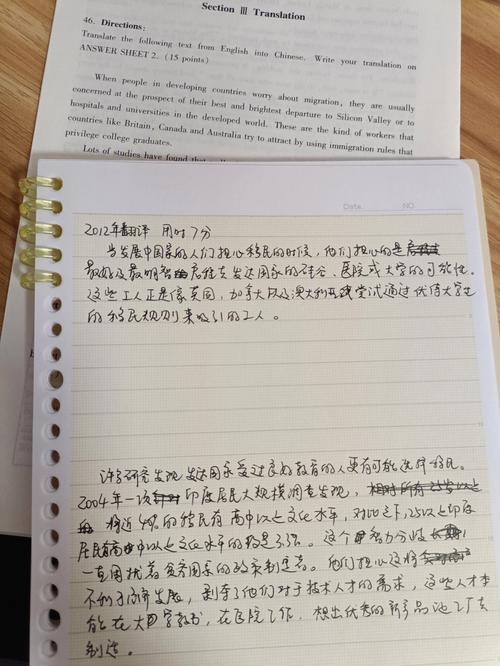 Section Ⅲ Translation
46. Directions:
Translate the following text from English into Chinese. Write your translation on
ANSWER SHEET 2. (15 points)
When people in developing countries worry about migration, they are usually
concerned at the prospect of their best and brightest departure to Silicon Valley or to
hospitals and universities in the developed world. These are the kind of workers that
countries like Britain, Canada and Australia try to attract by using immigration rules that
privilege college graduates.
Lots of studies have found that
Date. NO.
2012年翻译 用时7分
当发展中国家的人们担心移民的时候，他们担心的是
最好及最明智 居住去发达国家的硅谷、医院或大学的可能性。
这些工人正是像英国，加拿大以及澳大利亚 尝试通过优待大学生
的移民规则来吸引的工人。
许多研究发现 发达国家受过良好教育的人更有可能选择移民。
2004年一次 印度居民大规模调查发现，
将近40%的移民有高中以上文化水平，对比之下，25以上印度
居民有高中以上文化水平的 是3.3%。这个 智力分歧
一直困扰着贫穷国家的政策制定者。他们担心这将
不利于经济发展，剥夺了他们对于技术人才的需求，这些人才本
能在大学教书，在医院工作，想出优秀的新产品让工厂去
制造。